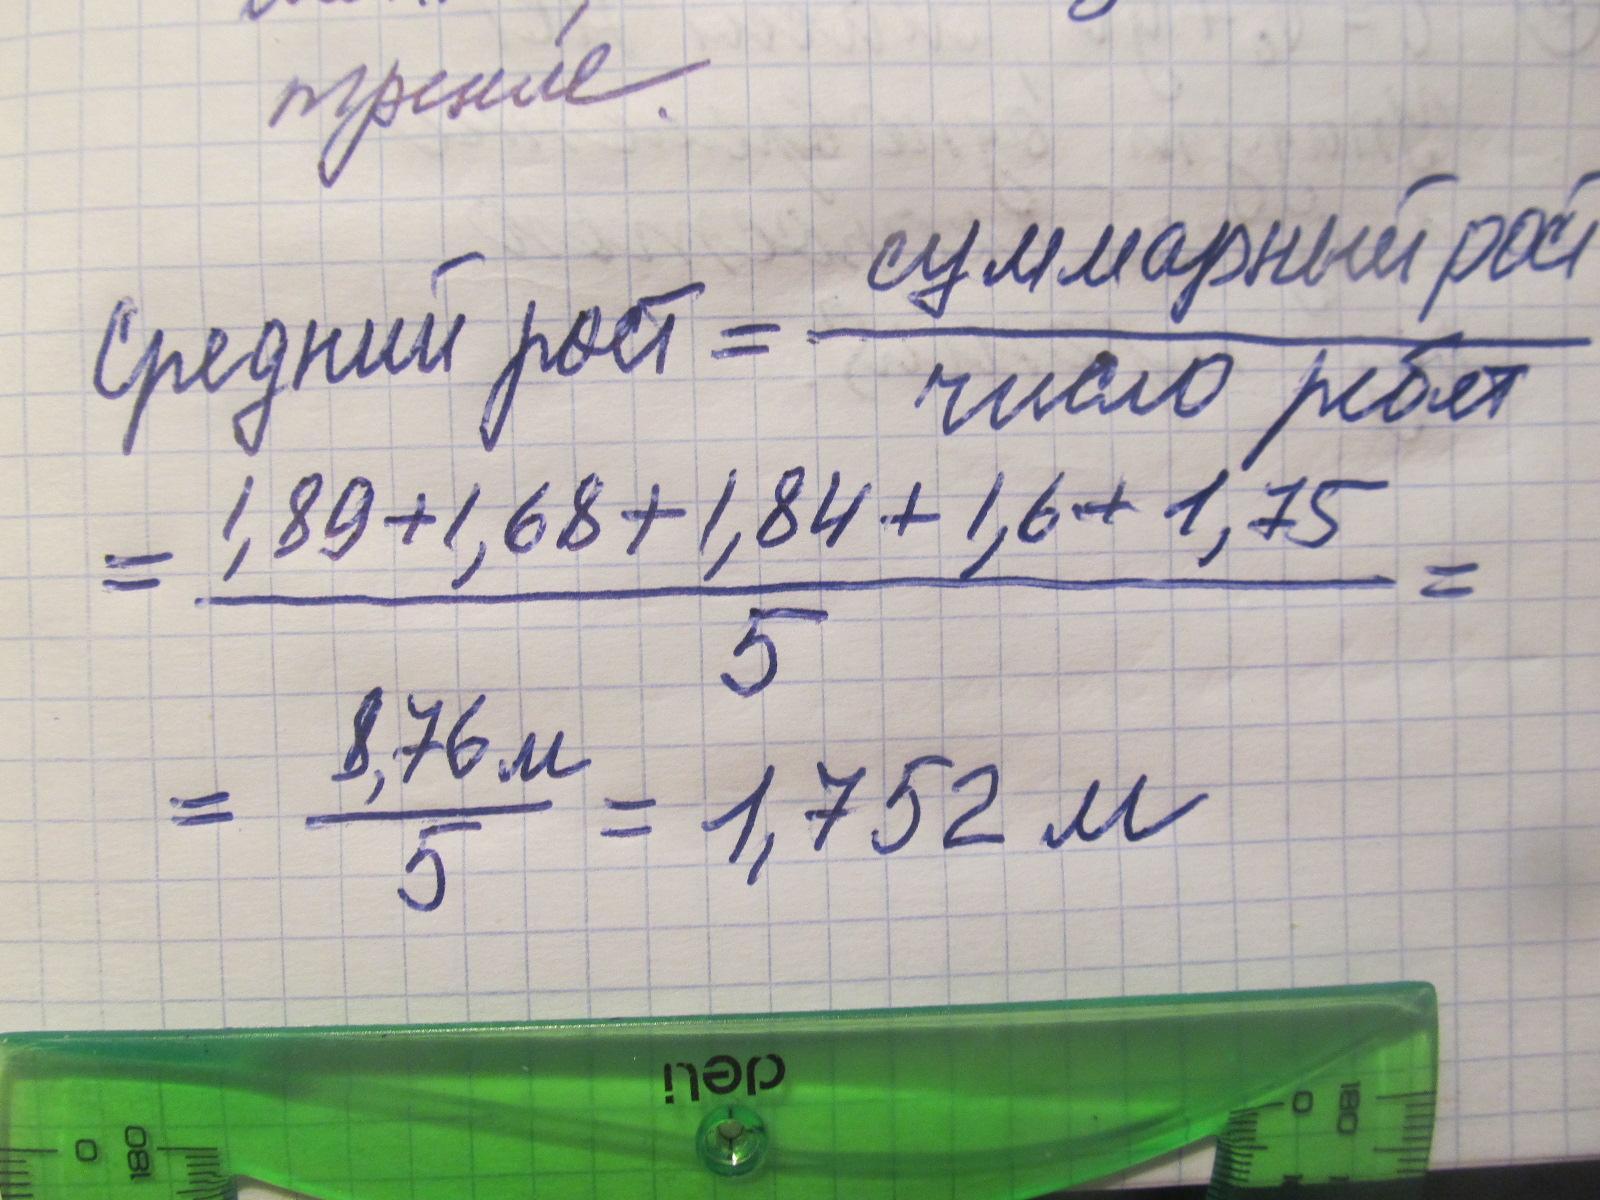 трение.
Средний рост = суммарный рост / число ребят
= 1,89 + 1,68 + 1,84 + 1,6 + 1,75 / 5 =
= 8,76 м / 5 = 1,752 м
deli
0 180 0 180